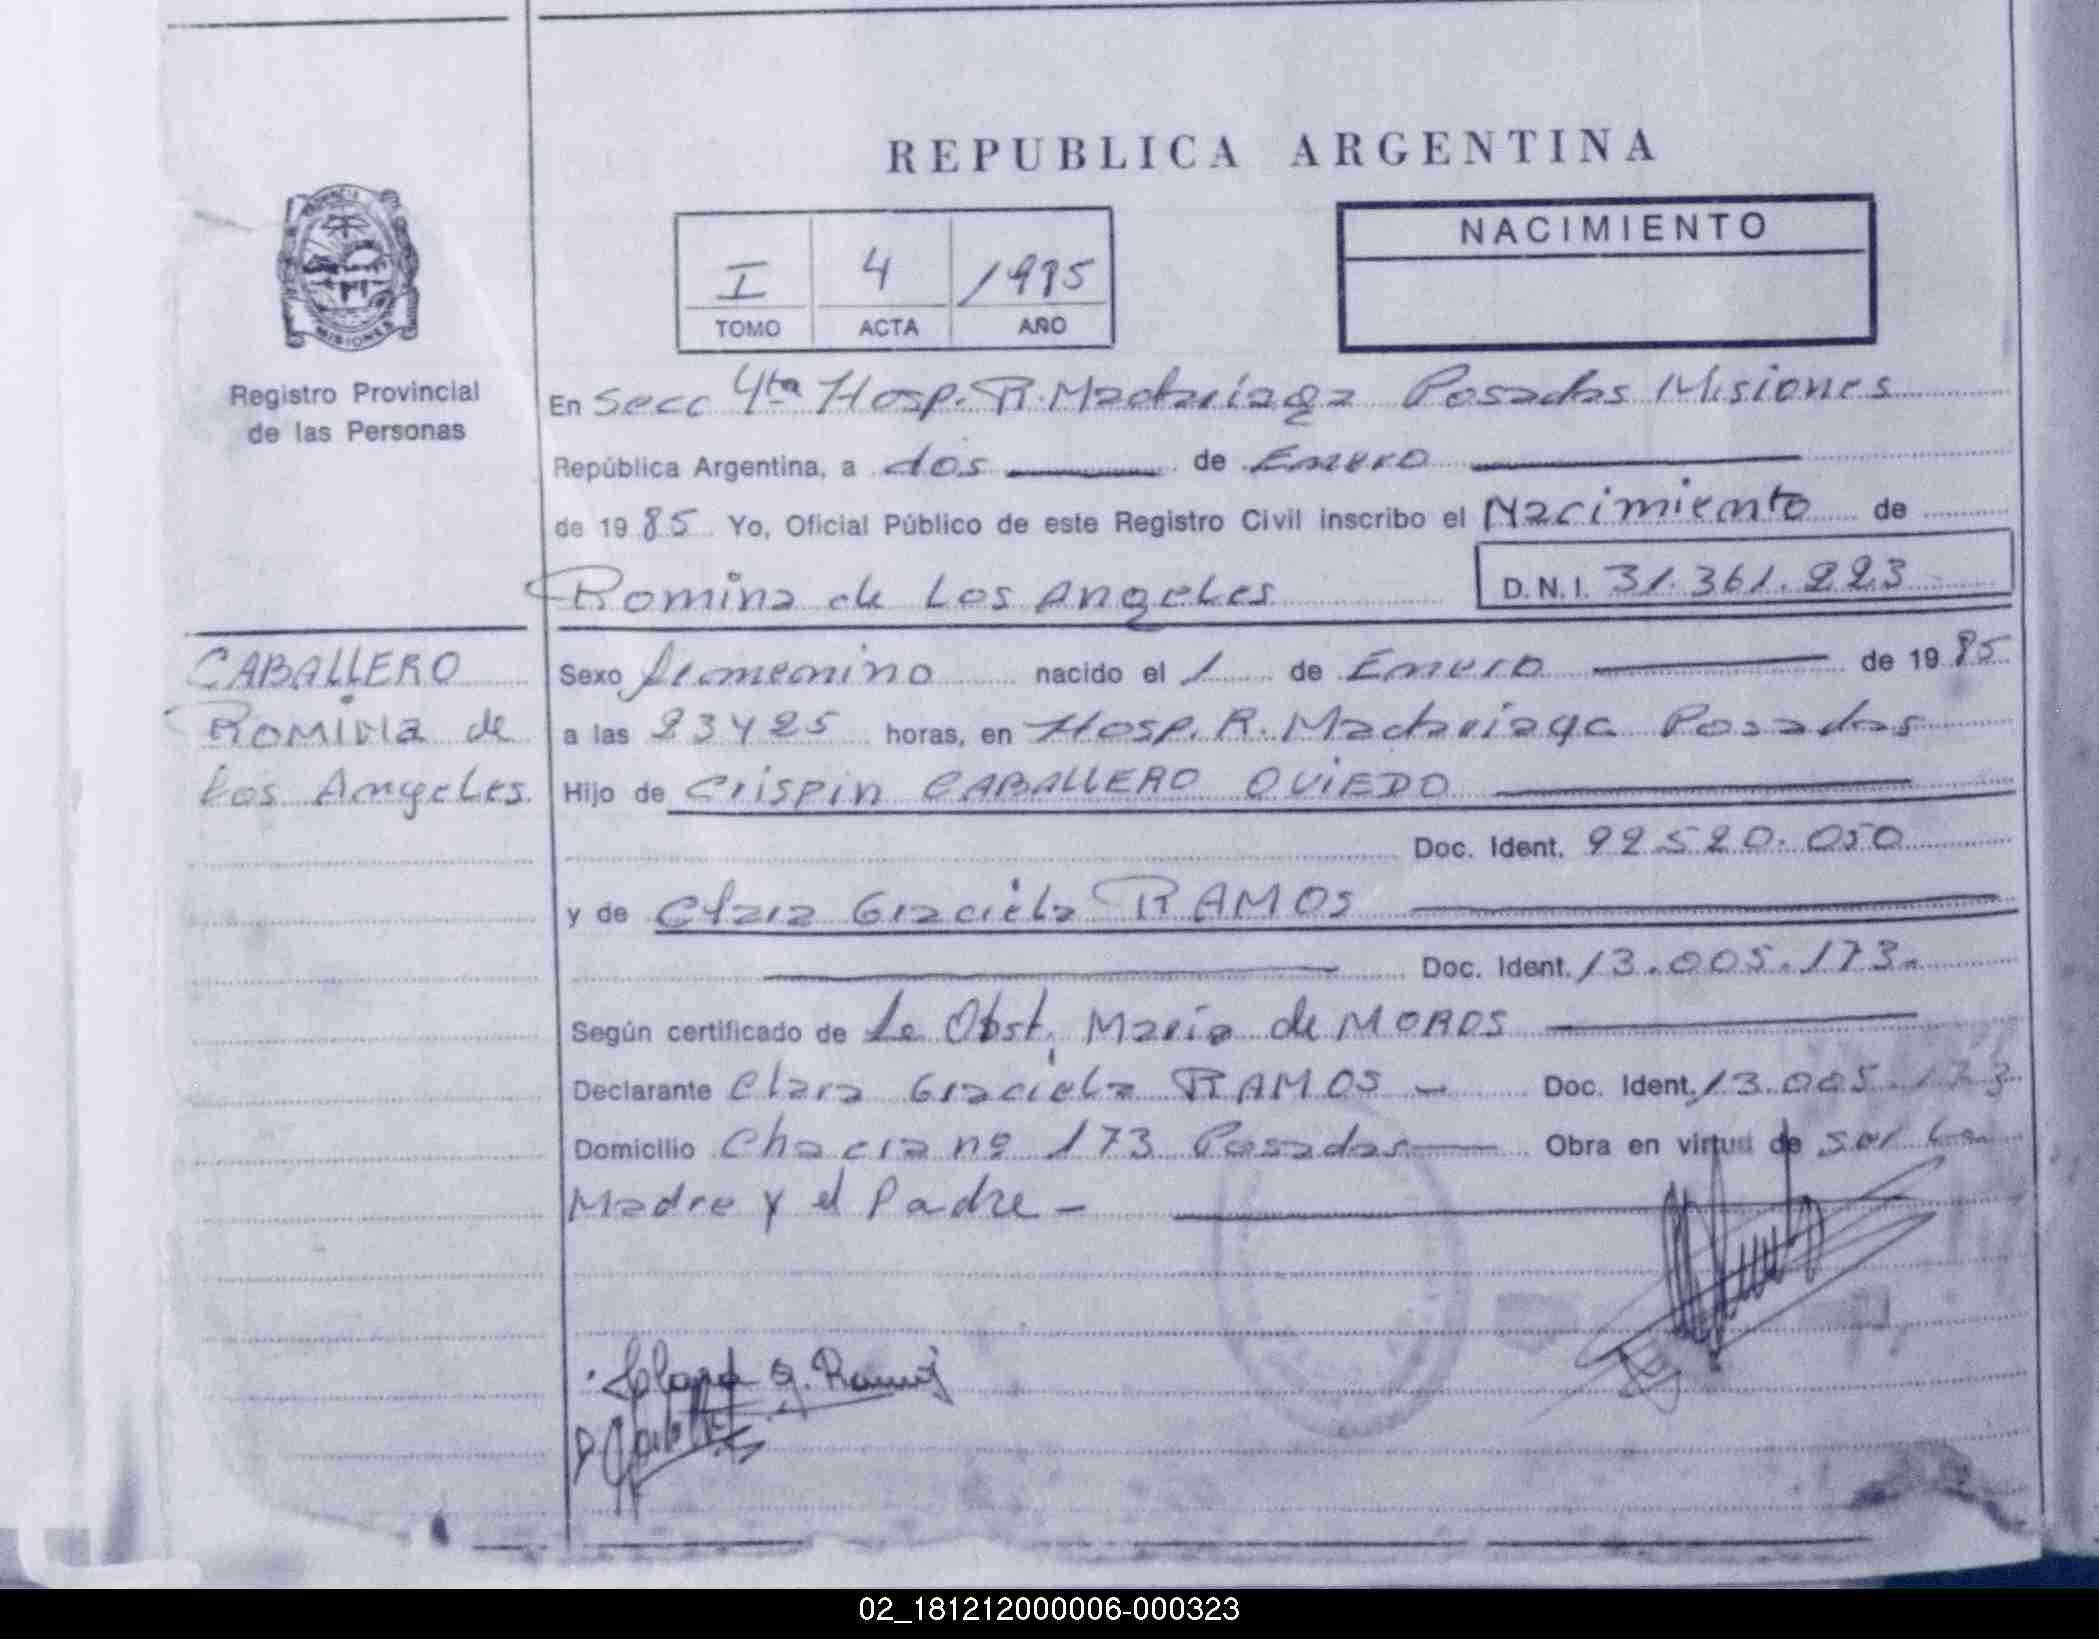 REPUBLICA ARGENTINA
PROVINCIA DE MISIONES
Registro Provincial
de las Personas
I 4 1985
TOMO ACTA AÑO
NACIMIENTO
En Secc 4ta Hosp. R. Madariaga Posadas Misiones
República Argentina, a dos de Enero
de 1985 Yo, Oficial Público de este Registro Civil inscribo el Nacimiento de
Romina de Los Angeles D.N.I. 31.361.223
CABALLERO
Romina de
Los Angeles
Sexo femenino nacido el 1 de Enero de 1985
a las 23 y 25 horas, en Hosp. R. Madariaga Posadas
Hijo de Crispin CABALLERO OVIEDO
Doc. Ident. 92520.050
y de Clara Graciela RAMOS
Doc. Ident. 13.005.173.
Según certificado de La Obst. Maria de MOROS
Declarante Clara Graciela RAMOS - Doc. Ident. 13.005.173
Domicilio Chacra nº 173 Posadas Obra en virtud de ser La
Madre y el Padre -
G. Ramos
02_181212000006-000323